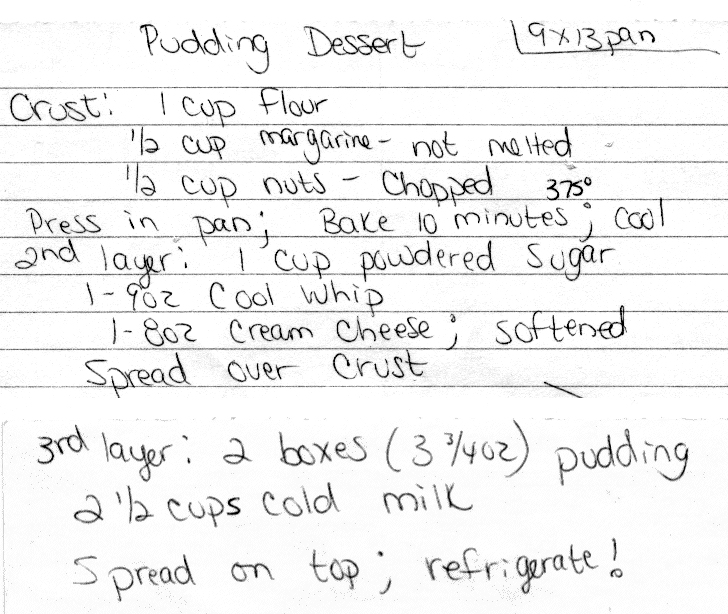 Pudding Dessert 9x13 pan
Crust: 1 cup flour
1/2 cup margarine - not melted
1/2 cup nuts - Chopped 375°
Press in pan; Bake 10 minutes; cool
2nd layer: 1 cup powdered sugar
1-9oz Cool Whip
1-8oz cream cheese; softened
Spread over crust
3rd layer: 2 boxes (3 3/4oz) pudding
2 1/2 cups cold milk
Spread on top; refrigerate!